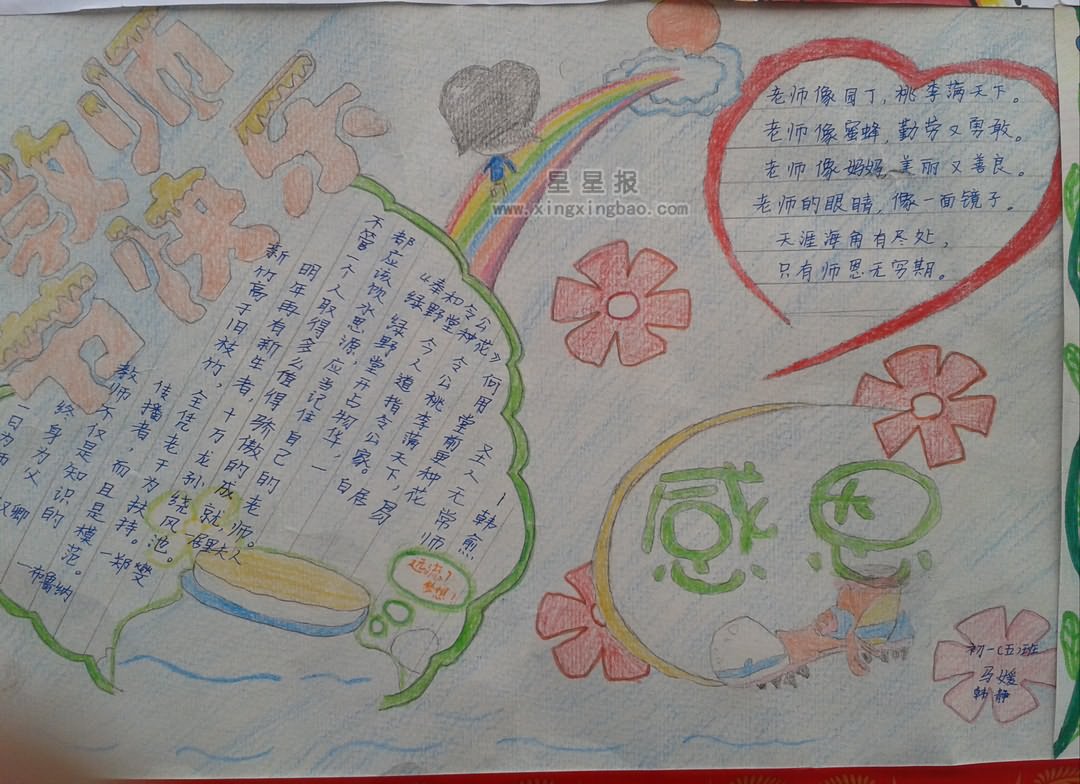 教师
节快乐
星星报
www.xingxingbao.com
老师像园丁,桃李满天下。
老师像蜜蜂,勤劳又勇敢。
老师像妈妈,美丽又善良。
老师的眼睛,像一面镜子。
天涯海角有尽处,
只有师恩无穷期。
圣人无常师
-韩愈
《奉和令公
绿野堂种花》
绿野堂开占物华,
令人道指令公家。
令公桃李满天下,
何用堂前更种花
-白居易
不管一个人取得多么值得骄傲的成就,
都应该饮水思源,应当记住自己的老师。
-居里夫人
新竹高于旧枝竹,全凭老干为扶持。
明年再有新生者,十万龙孙绕风池。
-郑燮
教师不仅是知识的
传播者,而且是模范。
-布鲁纳
一日为师
终身为父
汉卿
梦想!
感恩
初一(五)班
马媛
韩静